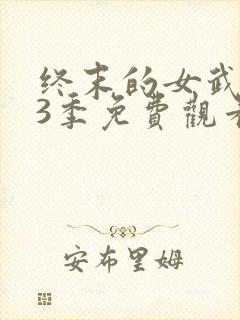 终末的女武
3季免費觀看
安布里姆